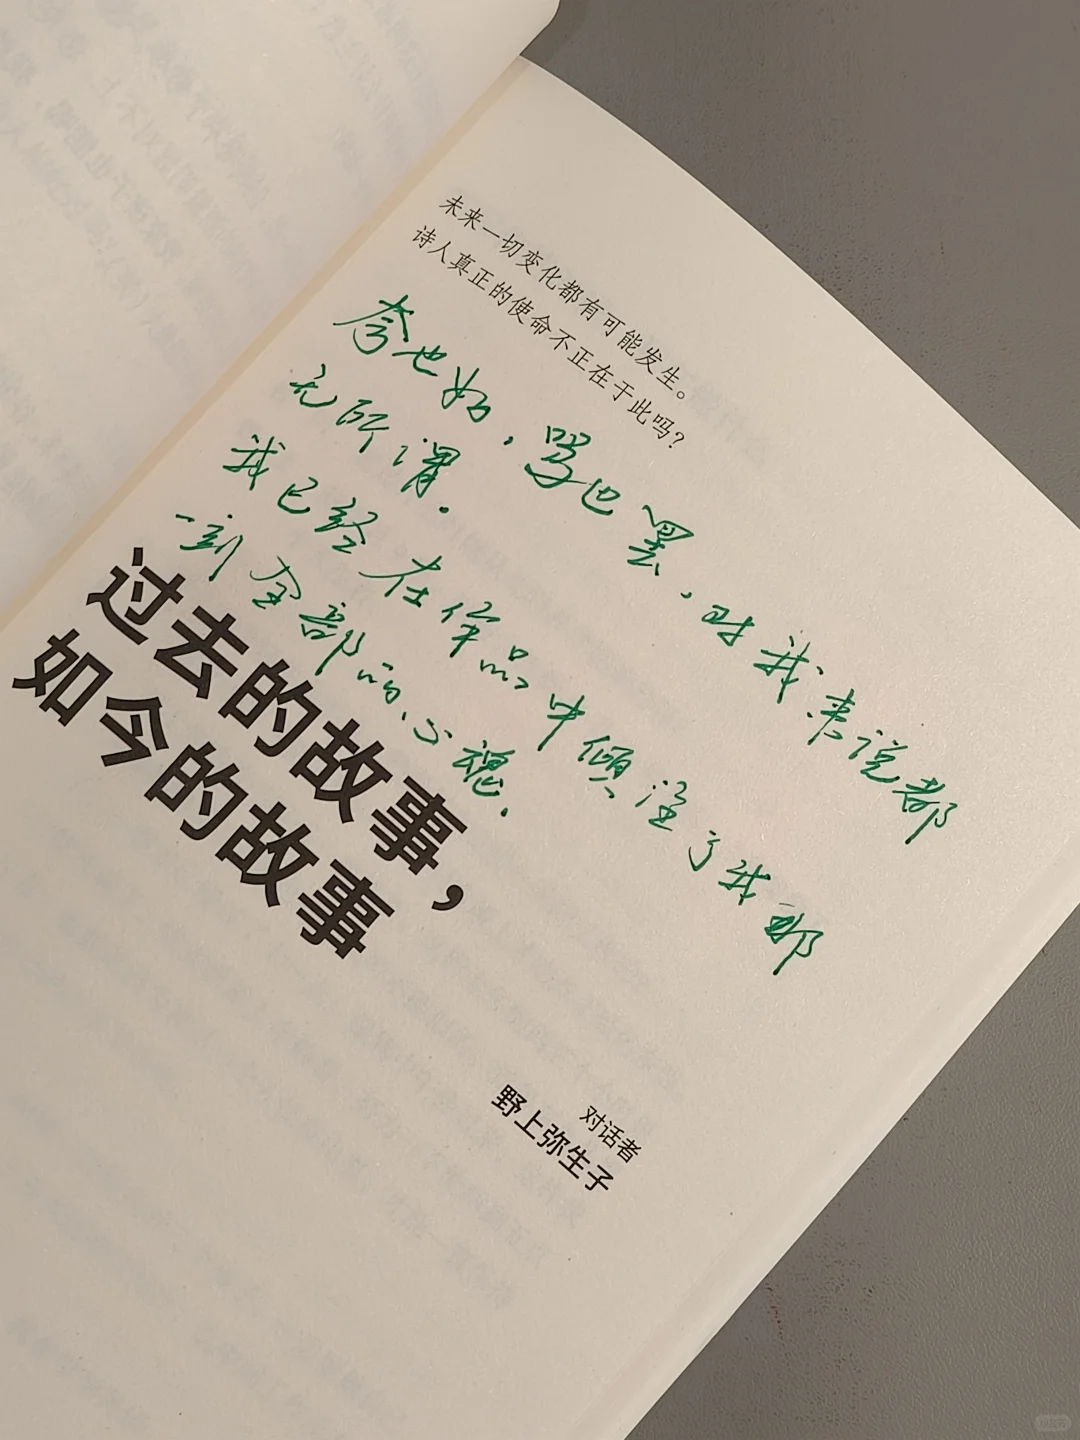 未来一切变化都有可能发生。
诗人真正的使命不正在于此吗?
夸也好,骂也罢,对我来说都
无所谓。
我已经在作品中倾注了我那
一刻全部的心魂。
过去的故事,
如今的故事
对话者
野上弥生子